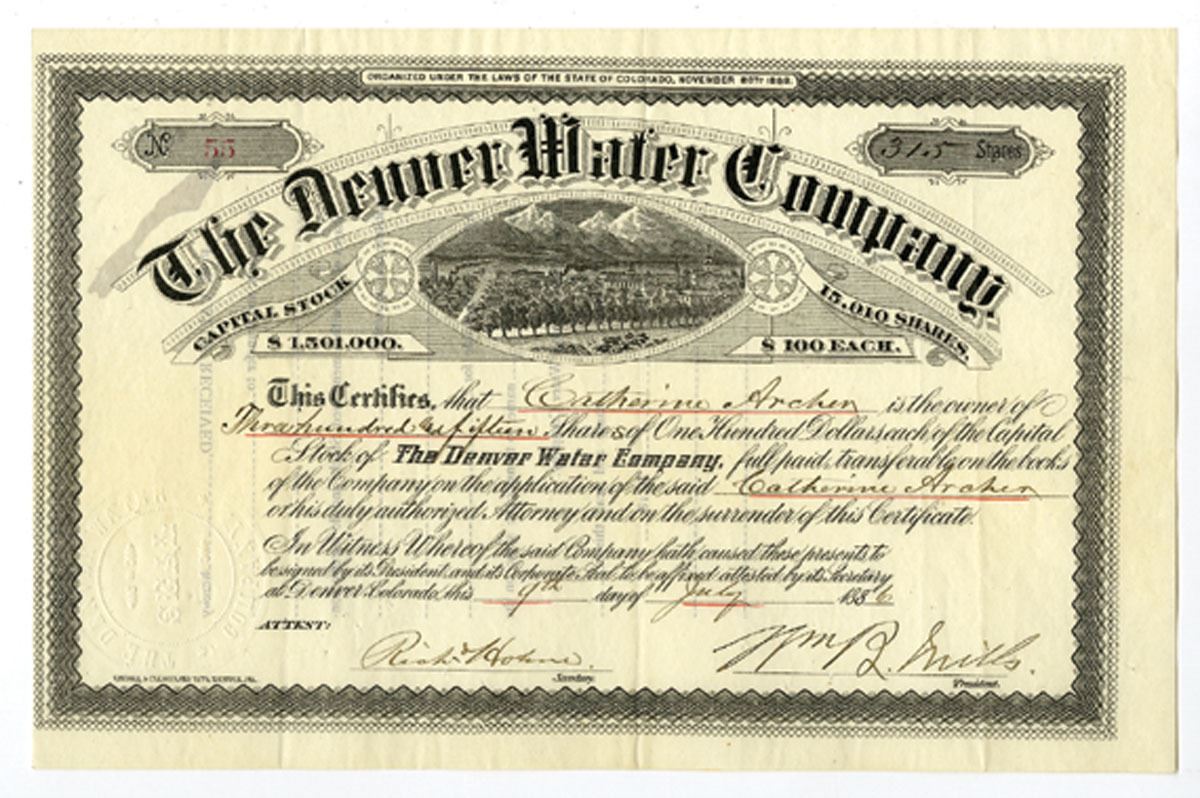 ORGANIZED UNDER THE LAWS OF THE STATE OF COLORADO, NOVEMBER
No 55
315 Shares
The Denver Water Company
CAPITAL STOCK
15,010 SHARES.
$1,501,000.
$100 EACH.
This Certifies, that Catherine Archer is the owner of
Three hundred & fifteen Shares of One Hundred Dollars each of the Capital
Stock of The Denver Water Company, full paid, transferable on the books
of the Company on the application of the said Catherine Archer
or his duly authorized Attorney and on the surrender of this Certificate.
In Witness Whereof the said Company hath caused these presents to
be signed by its President and its Corporate Seal to be affixed attested by its Secretary
at Denver Colorado, this 9th day of July 1886
ATTEST:
Richd
Secretary.
Wm B. Mills.
President.
RECEIVED
SEAL